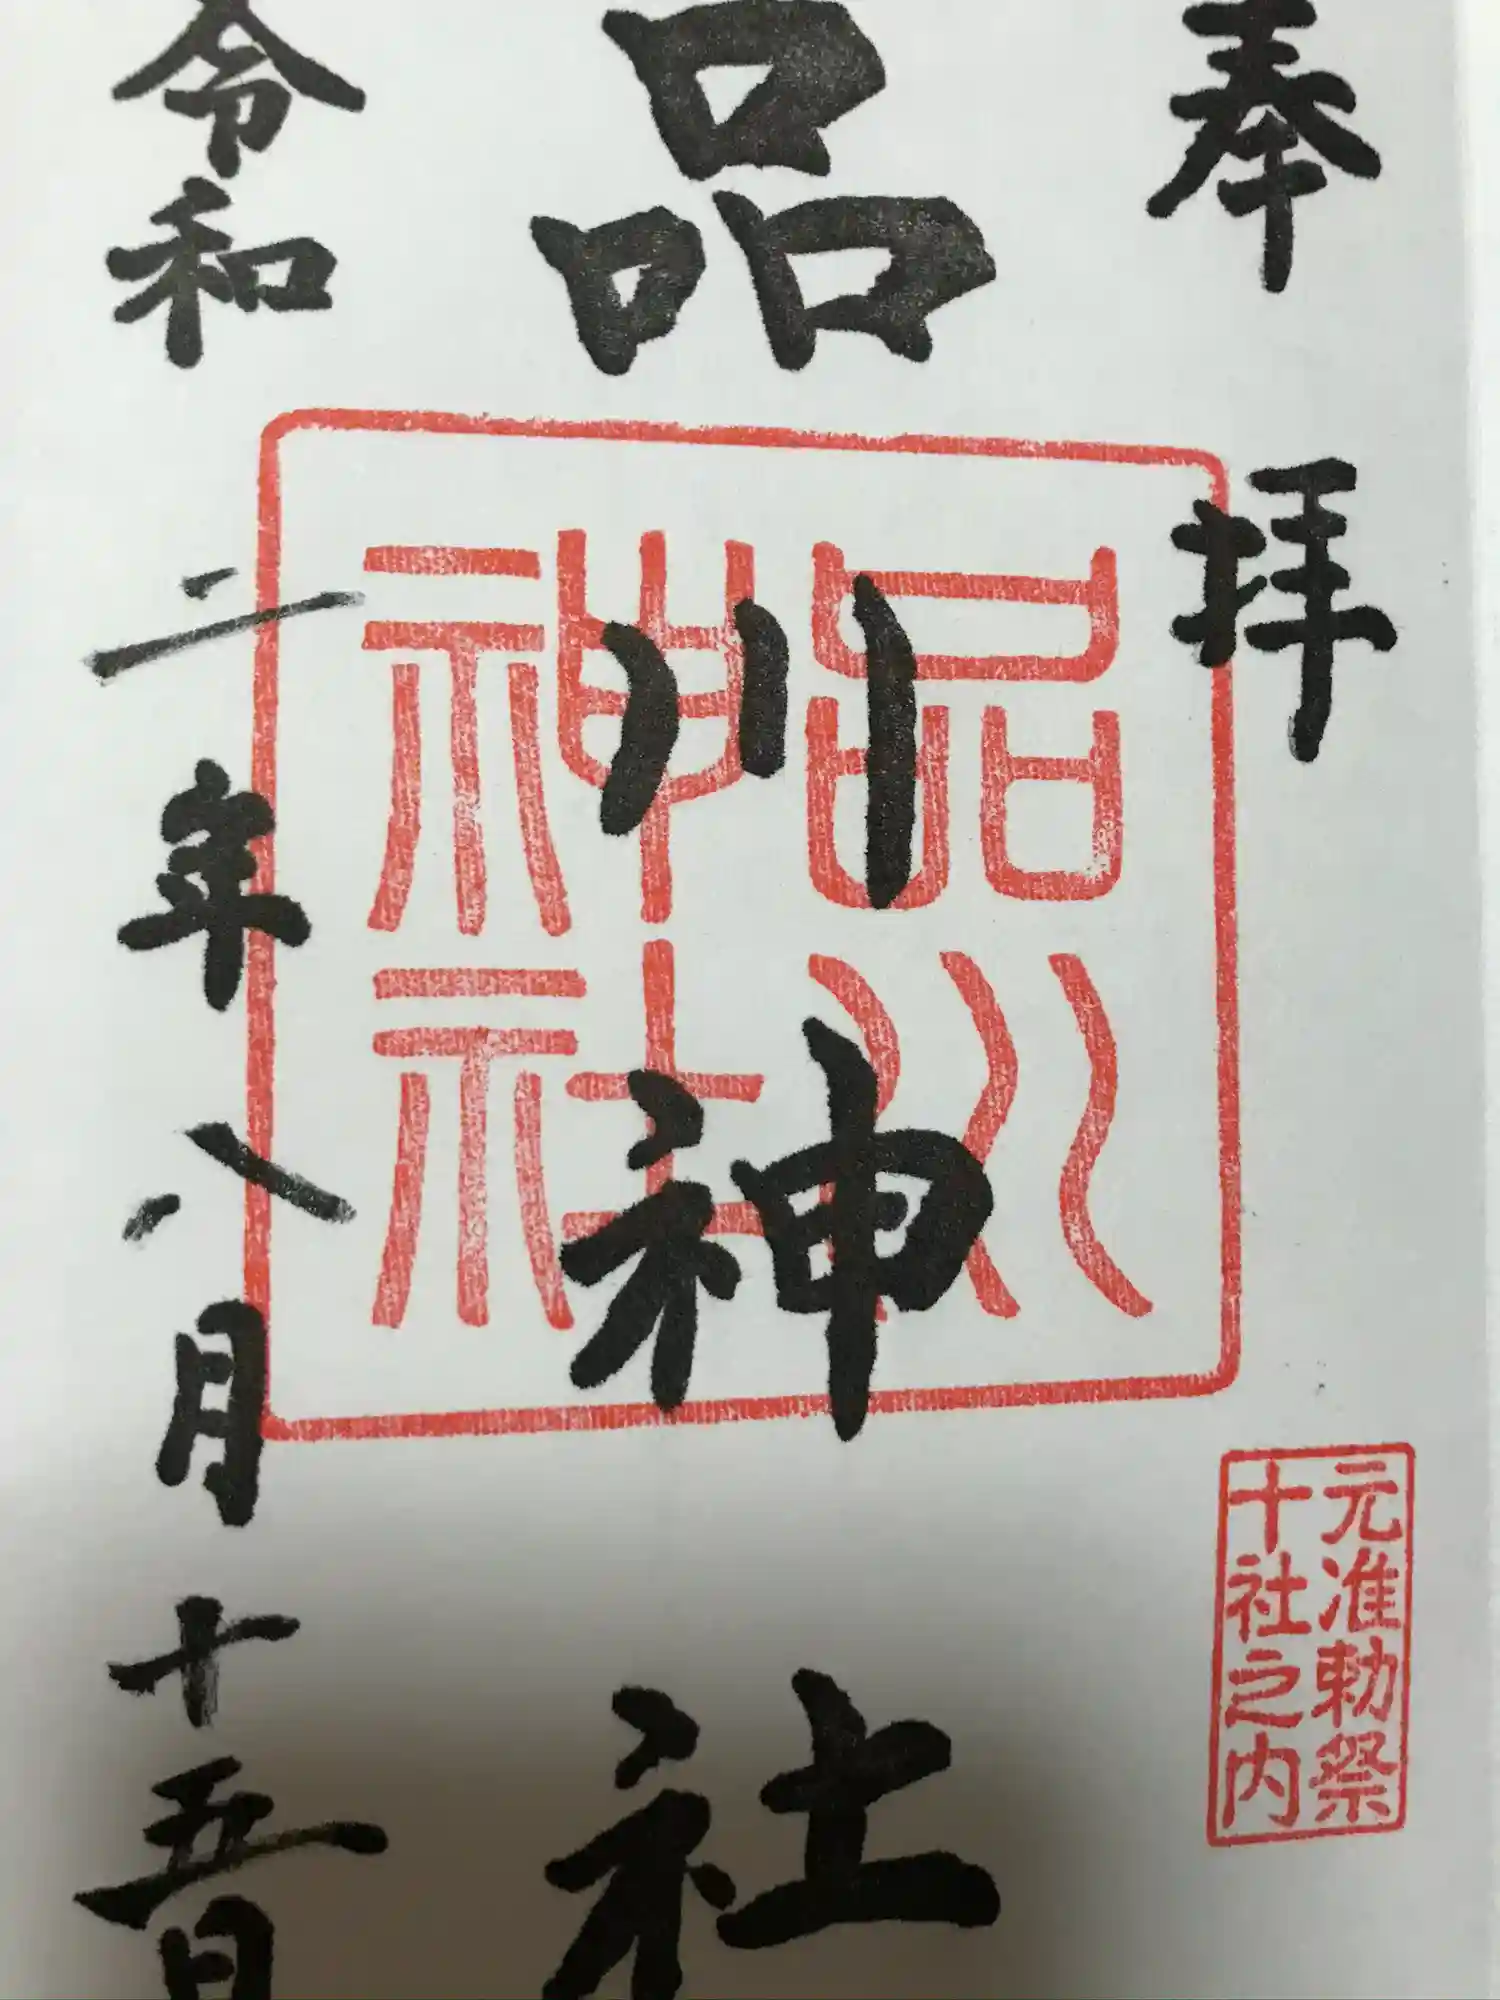 奉拝
元准勅祭
十社之内
品川神社
品川
神社
令和二年八月十五日